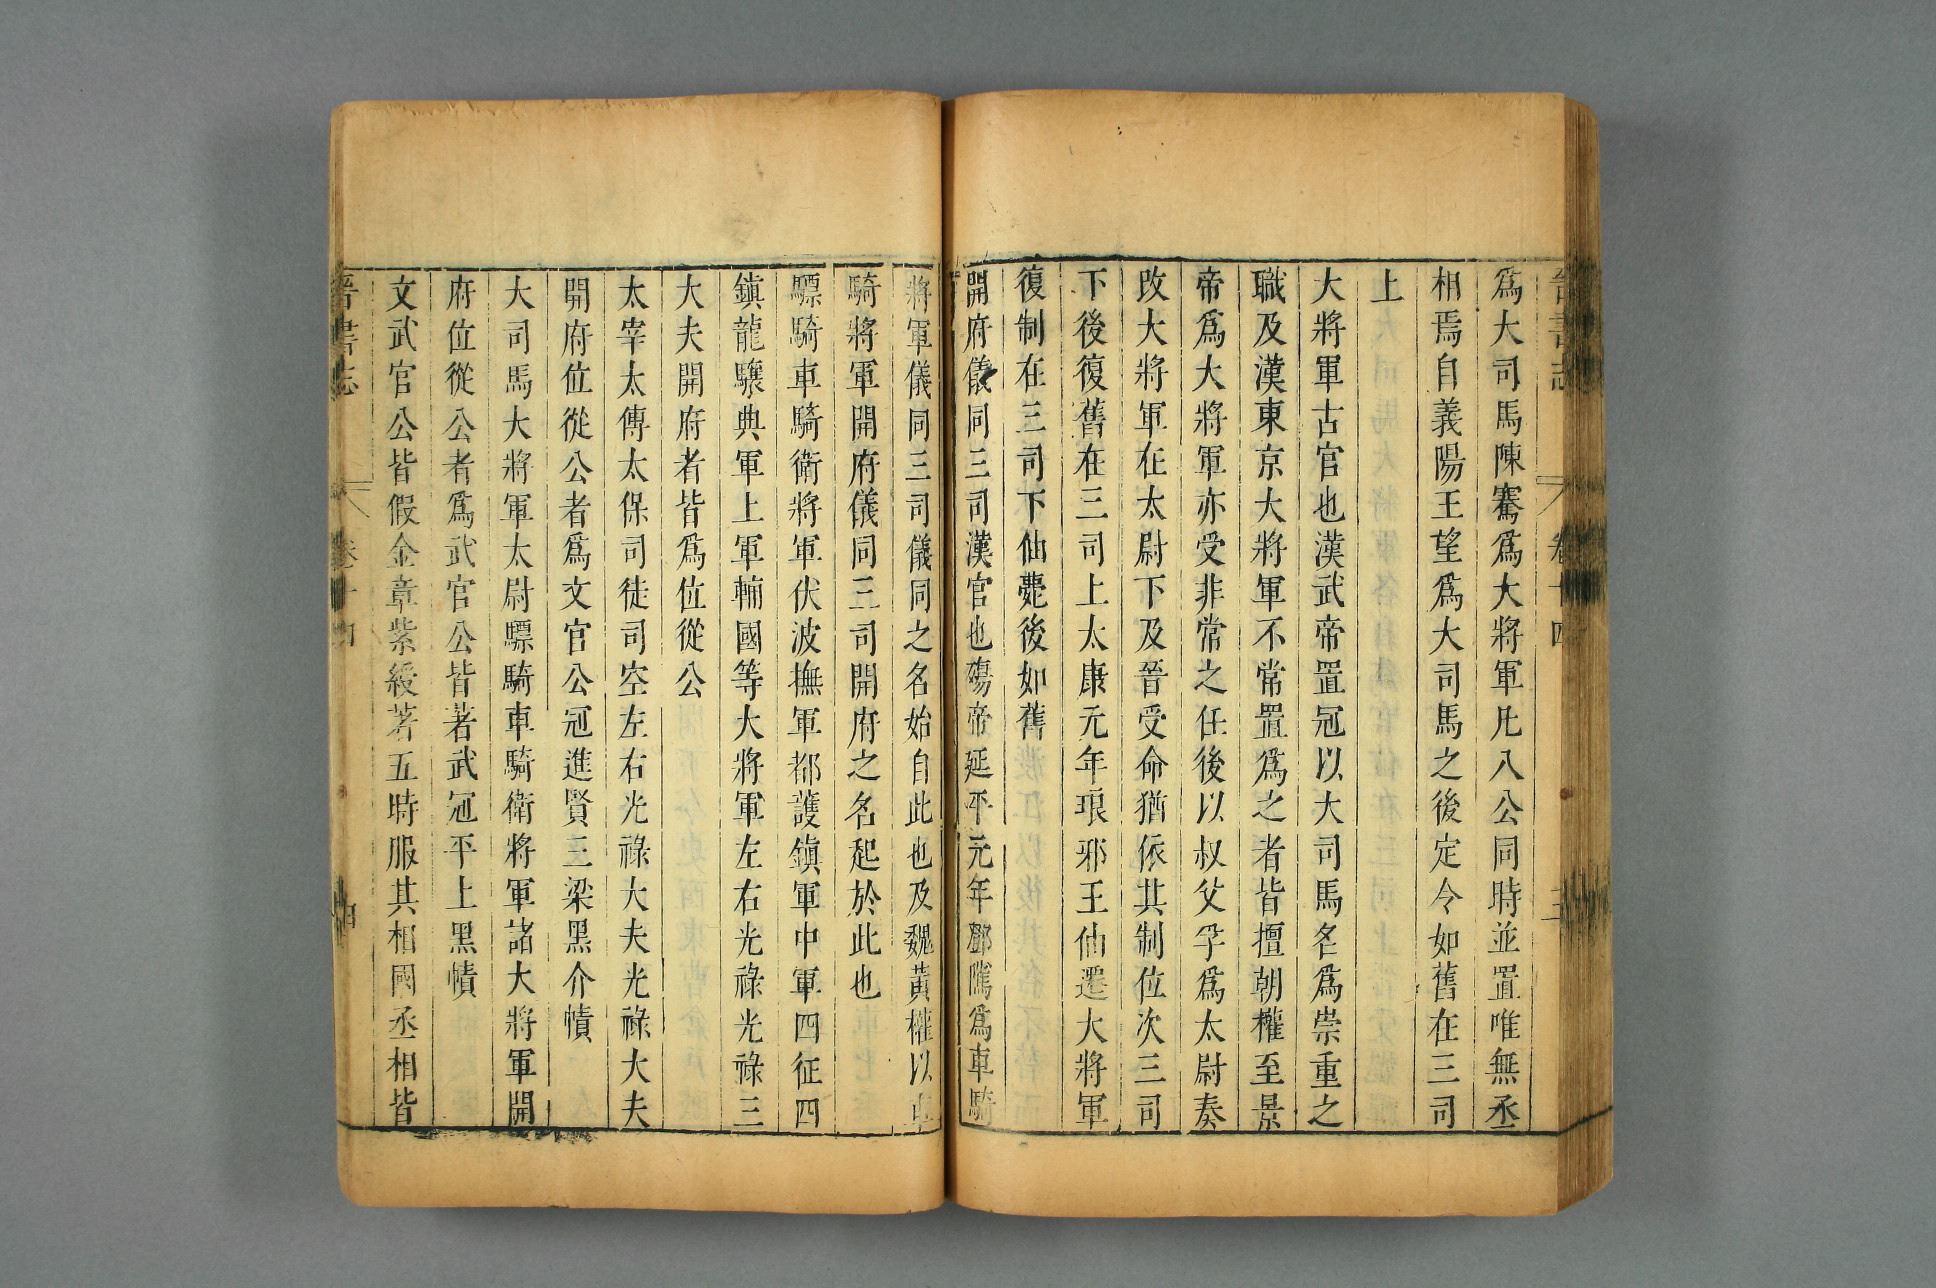 晉書志 卷十四 三
爲大司馬陳騫爲大將軍凡八公同時並置唯無丞
相焉自義陽王望爲大司馬之後定令如舊在三司
上
大將軍古官也漢武帝置冠以大司馬名爲崇重之
職及漢東京大將軍不常置爲之者皆擅朝權至景
帝爲大將軍亦受非常之任後以叔父孚爲太尉奏
改大將軍在太尉下及晉受命猶依其制位次三司
下後復舊在三司上太康元年琅邪王伷遷大將軍
復制在三司下伷薨後如舊
開府儀同三司漢官也殤帝延平元年鄧騭爲車騎
將軍儀同三司儀同之名始自此也及魏黃權以車
騎將軍開府儀同三司開府之名起於此也
驃騎車騎衛將軍伏波撫軍都護鎮軍中軍四征四
鎮龍驤典軍上軍輔國等大將軍左右光祿光祿三
大夫開府者皆爲位從公
太宰太傅太保司徒司空左右光祿大夫光祿大夫
開府位從公者爲文官公冠進賢三梁黑介幘
大司馬大將軍太尉驃騎車騎衛將軍諸大將軍開
府位從公者爲武官公皆著武冠平上黑幘
文武官公皆假金章紫綬著五時服其相國丞相皆
晉書志 卷十四 四